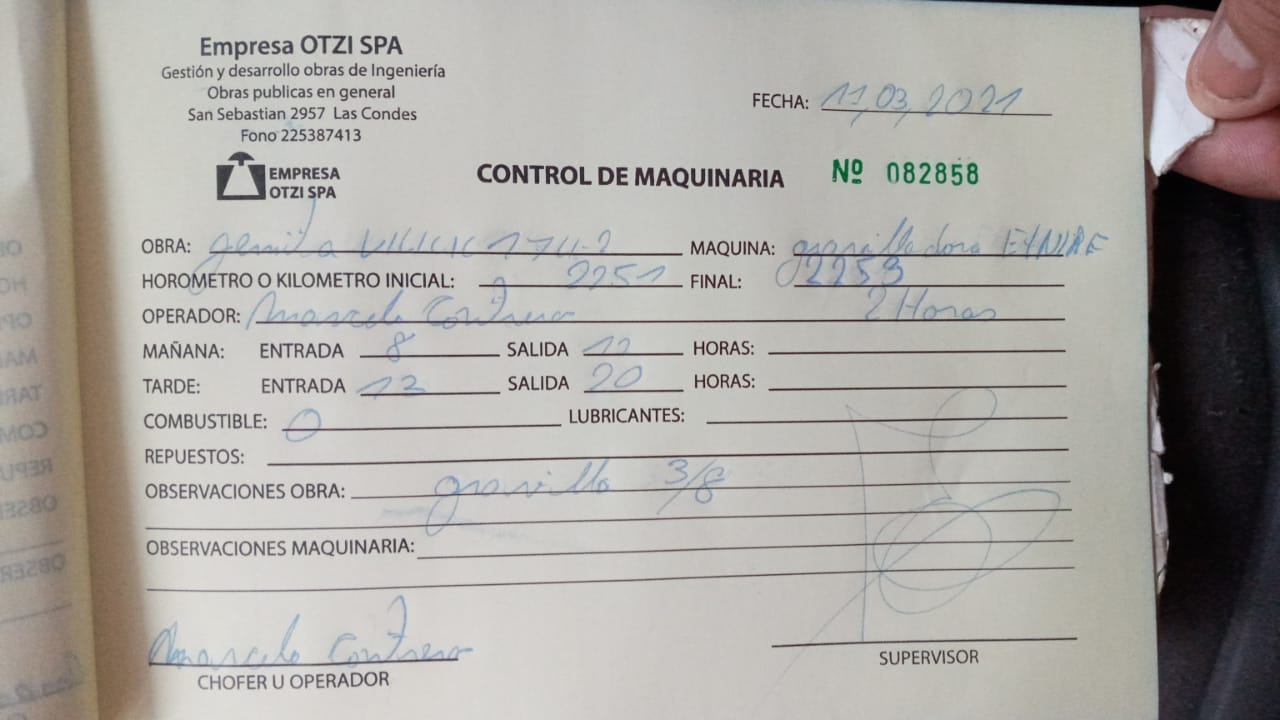 Empresa OTZI SPA
Gestión y desarrollo obras de Ingeniería
Obras publicas en general
San Sebastian 2957 Las Condes
Fono 225387413
EMPRESA
OTZI SPA
FECHA: 11,03,2021
CONTROL DE MAQUINARIA Nº 082858
OBRA: MAQUINA: gravilladora
HOROMETRO O KILOMETRO INICIAL: 2251 FINAL: 2253
OPERADOR: Marcelo Contrera 2 Horas
MAÑANA: ENTRADA 8 SALIDA 12 HORAS:
TARDE: ENTRADA 13 SALIDA 20 HORAS:
COMBUSTIBLE: 0 LUBRICANTES:
REPUESTOS:
OBSERVACIONES OBRA: gravilla 3/8
OBSERVACIONES MAQUINARIA:
Marcelo Contrera
CHOFER U OPERADOR
SUPERVISOR